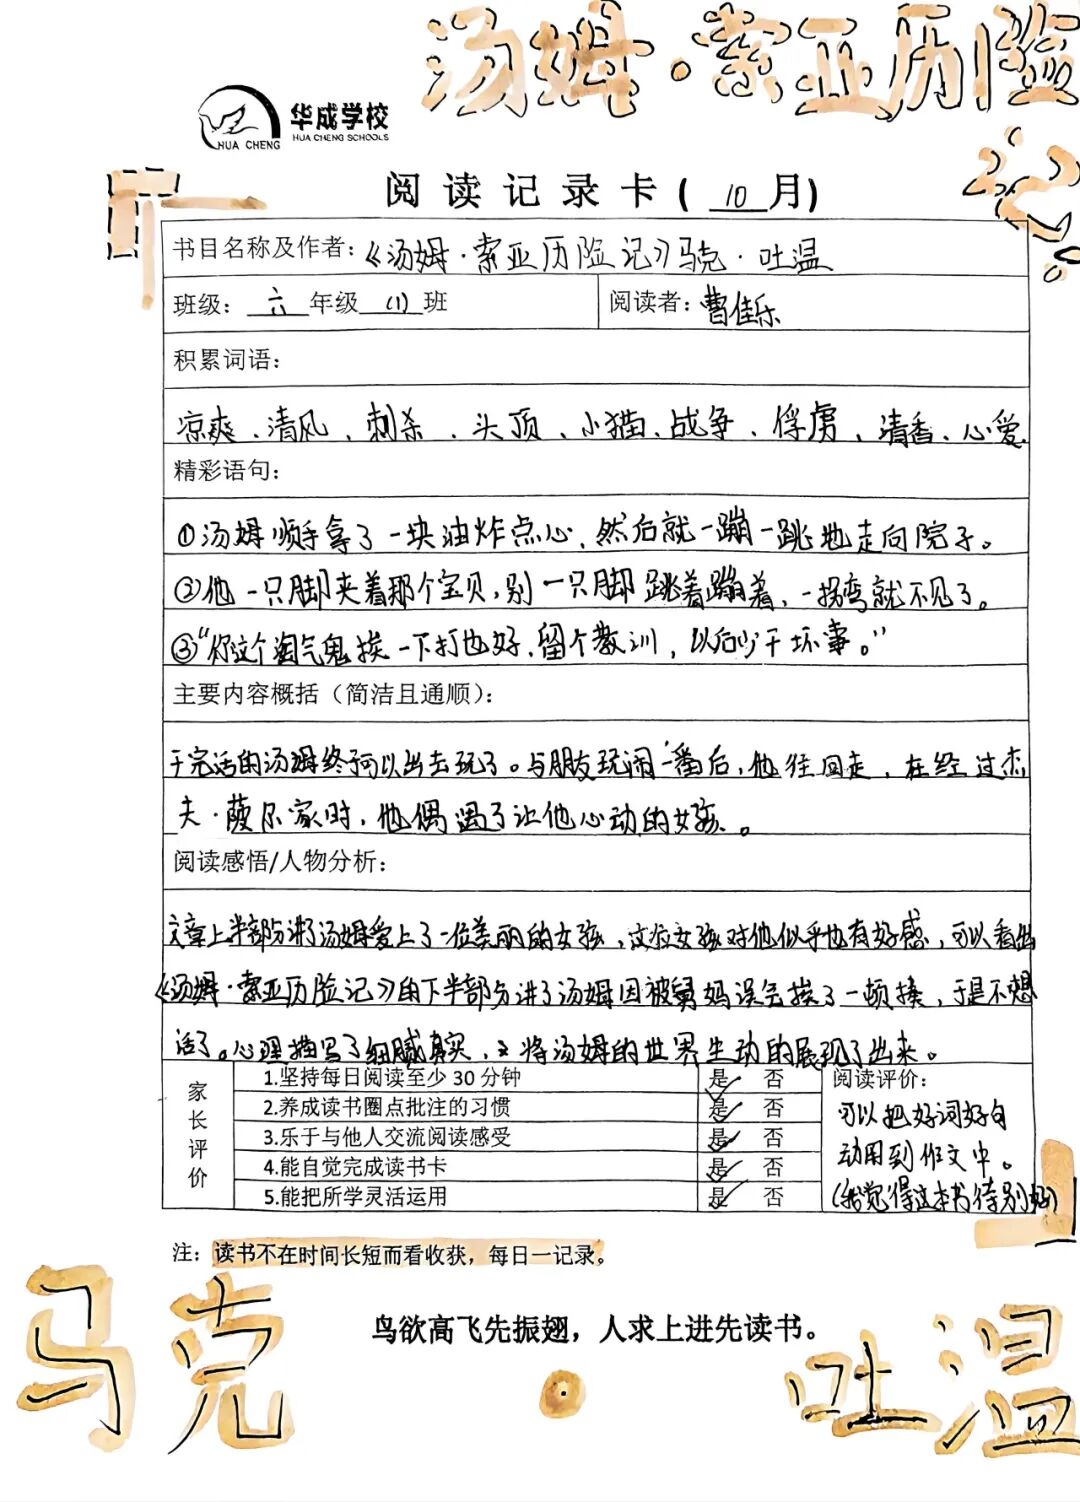 汤姆·索亚历险记
华成学校
HUA CHENG SCHOOLS
HUA CHENG
阅读记录卡(10月)
书目名称及作者:《汤姆·索亚历险记》马克·吐温
班级:六年级(1)班 阅读者:曹佳乐
积累词语:
凉爽、清风、刺杀、头顶、小猫、战争、俘虏、清香、心爱.
精彩语句:
①汤姆顺手拿了一块油炸点心,然后就一蹦一跳地走向院子。
②他一只脚夹着那个宝贝,别一只脚跳着蹦着,一拐弯就不见了。
③“你这个淘气鬼挨一下打也好,留个教训,以后少干坏事。”
主要内容概括(简洁且通顺):
干完活的汤姆终于可以出去玩了。与朋友玩闹一番后,他往回走,在经过杰
夫·萨尔家时,他偶遇了让他心动的女孩。
阅读感悟/人物分析:
文章上半部分讲了汤姆爱上了一位美丽的女孩,这位女孩对他似乎也有好感,可以看出
《汤姆·索亚历险记》的下半部分讲了汤姆因被舅妈误会挨了一顿揍,于是不想
活了。心理描写了细腻真实,将汤姆的世界生动的展现了出来。
家长评价
1.坚持每日阅读至少30分钟 是✓ 否
2.养成读书圈点批注的习惯 是✓ 否
3.乐于与他人交流阅读感受 是✓ 否
4.能自觉完成读书卡 是✓ 否
5.能把所学灵活运用 是✓ 否
阅读评价:
可以把好词好句
动用到作文中。
(我觉得这本书特别好)
注:读书不在时间长短而看收获,每日一记录。
鸟欲高飞先振翅,人求上进先读书。
马克·吐温